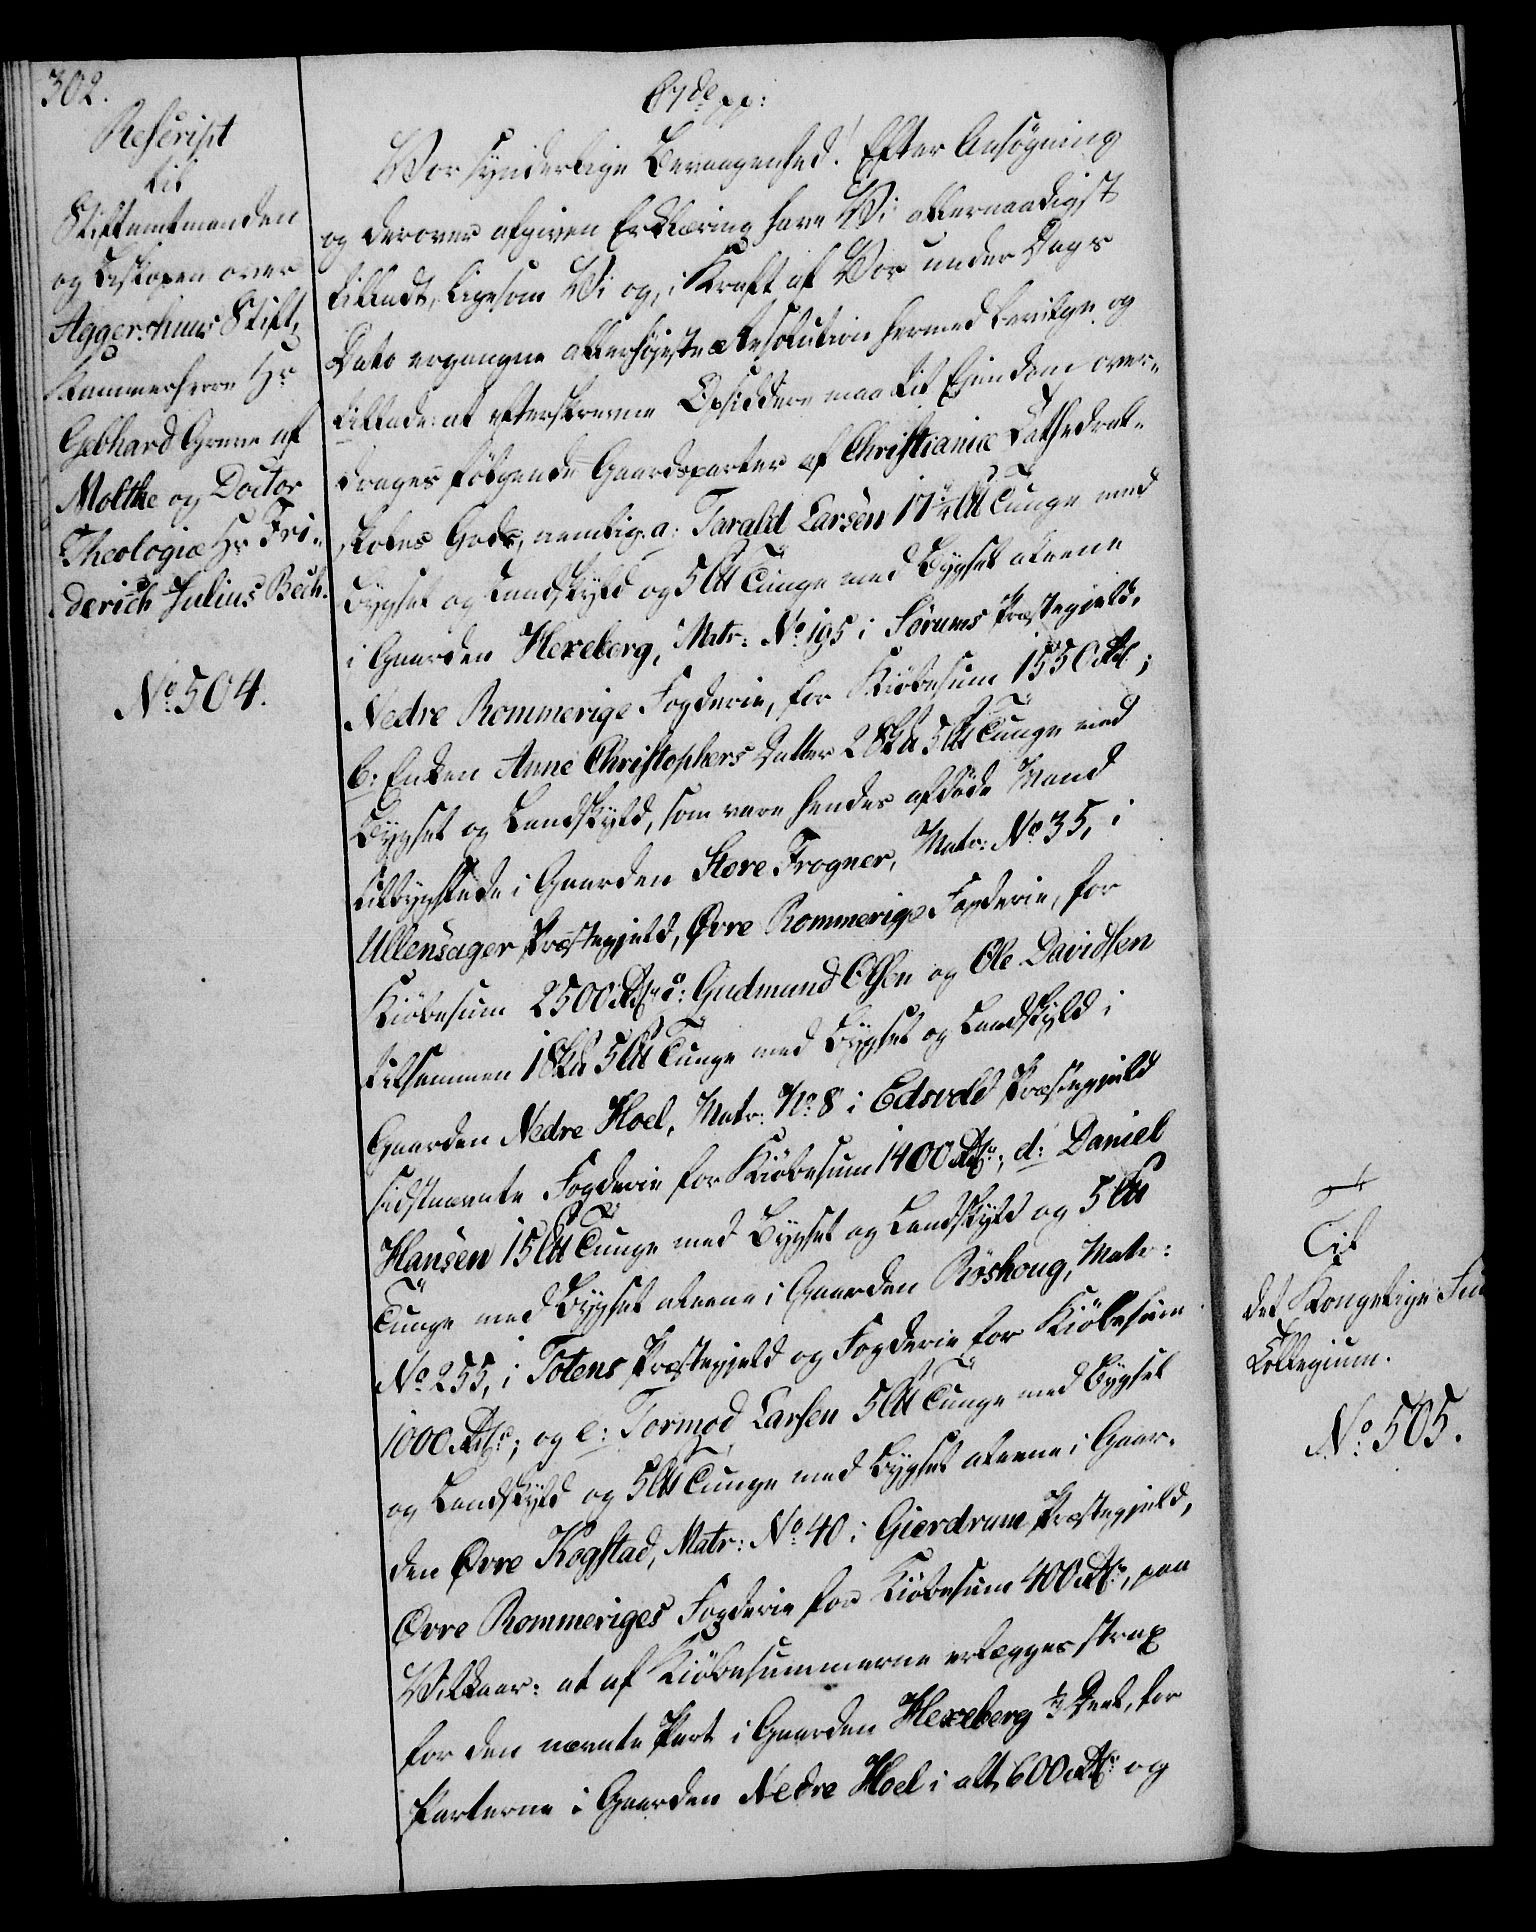 302.
Rescript
til
Stiftamtmanden
og Biskopen over
Aggershuus Stift,
Kammerherre Hr
Gebhard Greve af
Moltke og Doctor
Theologiæ Hr Fri-
derich Julius Bech.
No 504.
pp:
Vor synderlige Bevaagenhed! Efter Ansøgning
og derover afgiven Erklæring have Vi allernaadigst
tilladt, ligesom Vi og, i Kraft af Vor under Dags
Dato ergangne allerhøjeste Resolution hermed bevilge og
tillade: at efterskrevne Opsiddere maa til Ejendom over-
drages følgende Gaardsparter af Christianiæ Cathedral-
skoles Gods, nemlig: a: Tarald Larsen 17½ L℔ Tunge med
Bygsel og Landskyld og 5 L℔ Tunge med Bygsel alene
i Gaarden Hexeberg, Matr: No 195 i Sørums Præstegield,
Nedre Rommerige Fogderie, for Kiøbesum 1550 Rd;
b: Enken Anne Christophers Datter 2 Skd 5 L℔ Tunge med
Bygsel og Landskyld, som vare hendes afdøde Mand
tilbygslede i Gaarden Store Frogner, Matr: No 35, i
Ullensager Præstegield, Øvre Rommerige Fogderie, for
Kiøbesum 2500 Rd; c: Gudmund Olsen og Ole Davidsen
tilsammen 1 Skd 5 L℔ Tunge med Bygsel og Landskyld i
Gaarden Nedre Hoel, Matr: No 8 i Edsvold Præstegield
sidstnævnte Fogderie for Kiøbesum 1400 Rd; d: Daniel
Hansen 15 L℔ Tunge med Bygsel og Landskyld og 5 L℔
Tunge med Bygsel alene i Gaarden Røshoug, Matr:
No 255, i Totens Præstegield og Fogderie for Kiøbesum
1000 Rd; og e: Tormod Larsen 5 L℔ Tunge med Bygsel
og Landskyld og 5 L℔ Tunge med Bygsel alene i Gaar-
den Øvre Kogstad, Matr: No 40 i Gierdrum Præstegield,
Øvre Rommeriges Fogderie for Kiøbesum 400 Rd, paa
Vilkaar: at af Kiøbesummerne erlægges strax
for den nævnte Part i Gaarden Hexeberg ⅓ Deel, for
Parterne i Gaarden Nedre Hoel i alt 600 Rd og
Til
det Kongelige
Collegium.
No 505.